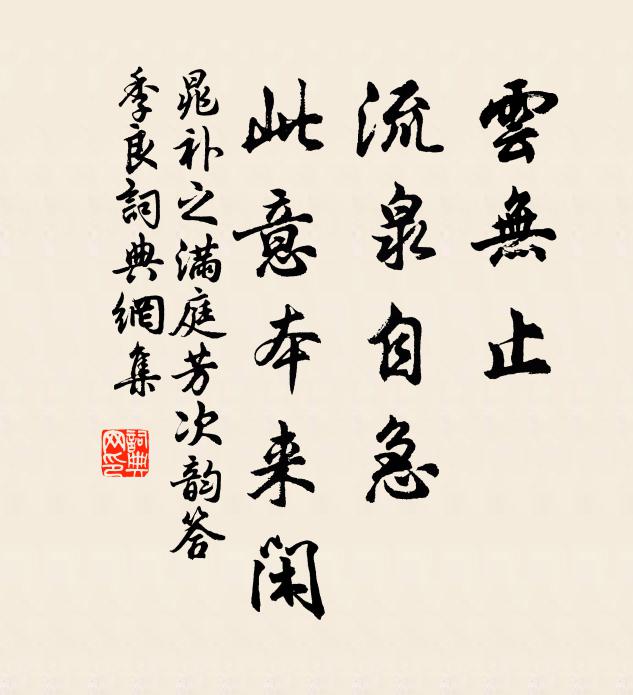 雲無止
流泉自急
此意本来閑
晁补之满庭芳次韵答
季良詞典網集
詞典
网印